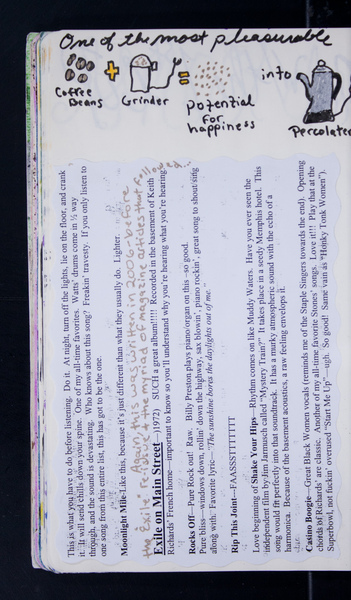 One of the most pleasurable
Coffee
Beans
+
Grinder
=
potential
for
happiness
into
Percolated
This is what you have to do before listening. Do it. At night, turn off the lights, lie on the floor, and crank
it. It will send chills down your spine. One of my all-time favorites. Watts' drums come in ½ way
through, and the sound is devastating. Who knows about this song? Freakin' travesty. If you only listen to
one song from this entire list, this has got to be the one.
Moonlight Mile-Like this, because it's just different than what they usually do. Lighter.
Again this was written in 2006-before
the "Exile" reissue & the myriad of magazine articles that followed...
Exile on Main Street—(1972) SUCH a great album!!!!! Recorded in the basement of Keith
Richards' French home—important to know so you'll understand why you're hearing what you're hearing
Rocks Off—Pure Rock out! Raw. Billy Preston plays piano/organ on this –so good.
Pure bliss—windows down, rollin' down the highway, sax blowin', piano rockin', great song to shout/sing
along with. Favorite lyric—"The sunshine bores the daylights out of me."
Rip This Joint—FAASSSTTTTTTT
Love beginning of Shake Your Hips—Rhythm comes on like Muddy Waters. Have you ever seen the
independent film by Jim Jarmusch called "Mystery Train?" It takes place in a seedy Memphis hotel. This
song would fit perfectly into that soundtrack. It has a murky atmospheric sound with the echo of a
harmonica. Because of the basement acoustics, a raw feeling envelops it.
Casino Boogie—Great Black Women vocals (reminds me of the Staple Singers towards the end). Opening
chords of Richards' are classic. Another of my all-time favorite Stones' songs. Love it!!! Play that at the
Superbowl, not fuckin' overused "Start Me Up"—ugh. So good! Same vain as "Honky Tonk Women").